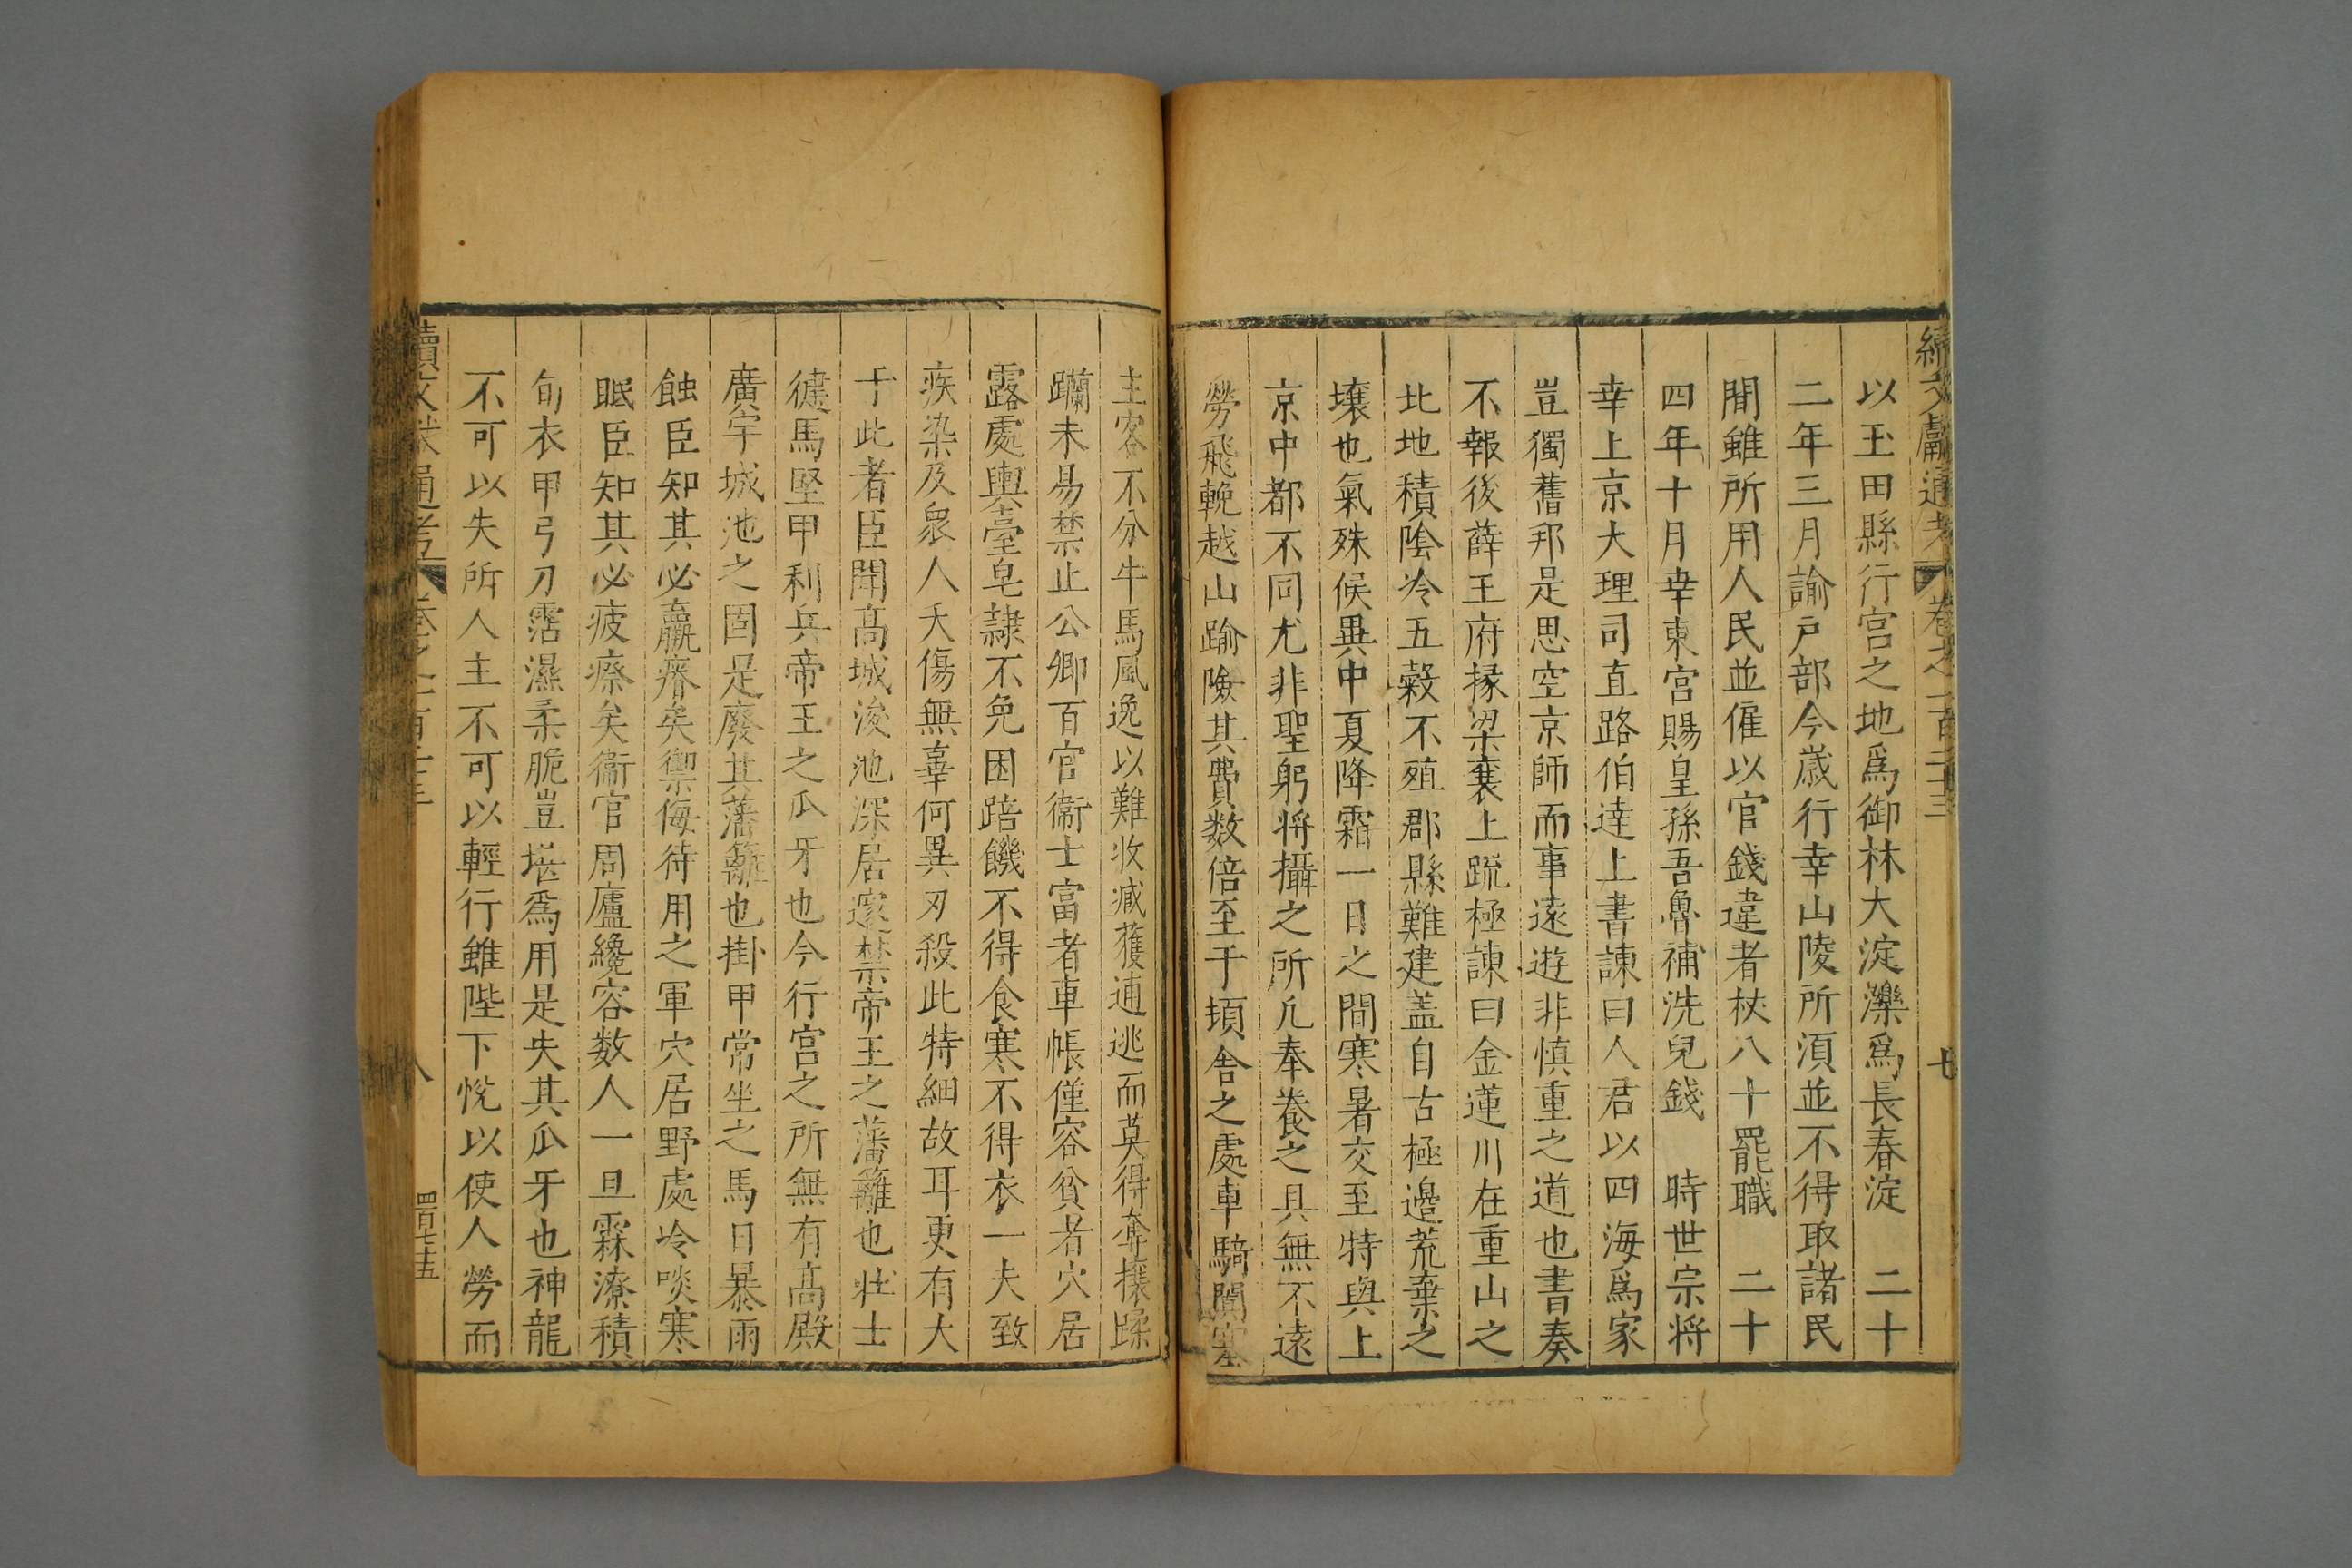 續文獻通考 卷之一百二十三 七
以玉田縣行宮之地爲御林大淀濼爲長春淀 二十
二年三月諭戸部今歳行幸山陵所須並不得取諸民
間雖所用人民並僱以官錢違者杖八十罷職 二十
四年十月幸東宮賜皇孫吾魯補洗兒錢 時世宗将
幸上京大理司直路伯逹上書諫曰人君以四海爲家
豈獨舊邦是思空京師而事遠遊非慎重之道也書奏
不報後薛王府掾梁襄上疏極諫曰金蓮川在重山之
北地積陰冷五穀不殖郡縣難建盖自古極邊荒棄之
壤也氣殊候異中夏降霜一日之間寒暑交至特與上
京中都不同尤非聖躬将攝之所凢奉養之具無不遠
勞飛輓越山踰險其費数倍至于頓舍之處車騎闐塞
主客不分牛馬風逸以難收臧獲逋逃而莫得奔攘蹂
躪未易禁止公卿百官衞士富者車帳僅容貧者穴居
露處輿臺皂隷不免困踣饑不得食寒不得衣一夫致
疾染及衆人夭傷無辜何異刃殺此特細故耳更有大
于此者臣聞高城浚池深居邃禁帝王之藩籬也壮士
健馬堅甲利兵帝王之瓜牙也今行宮之所無有高殿
廣宇城池之固是廢其藩籬也掛甲常坐之馬日暴雨
蝕臣知其必羸瘠矣禦侮待用之軍穴居野處冷啖寒
眠臣知其必疲瘵矣衞官周廬纔容数人一旦霖潦積
旬衣甲弓刀霑濕柔脆豈堪爲用是失其瓜牙也神龍
不可以失所人主不可以輕行雖陛下恱以使人勞而
續文獻通考 卷之一百二十三 八